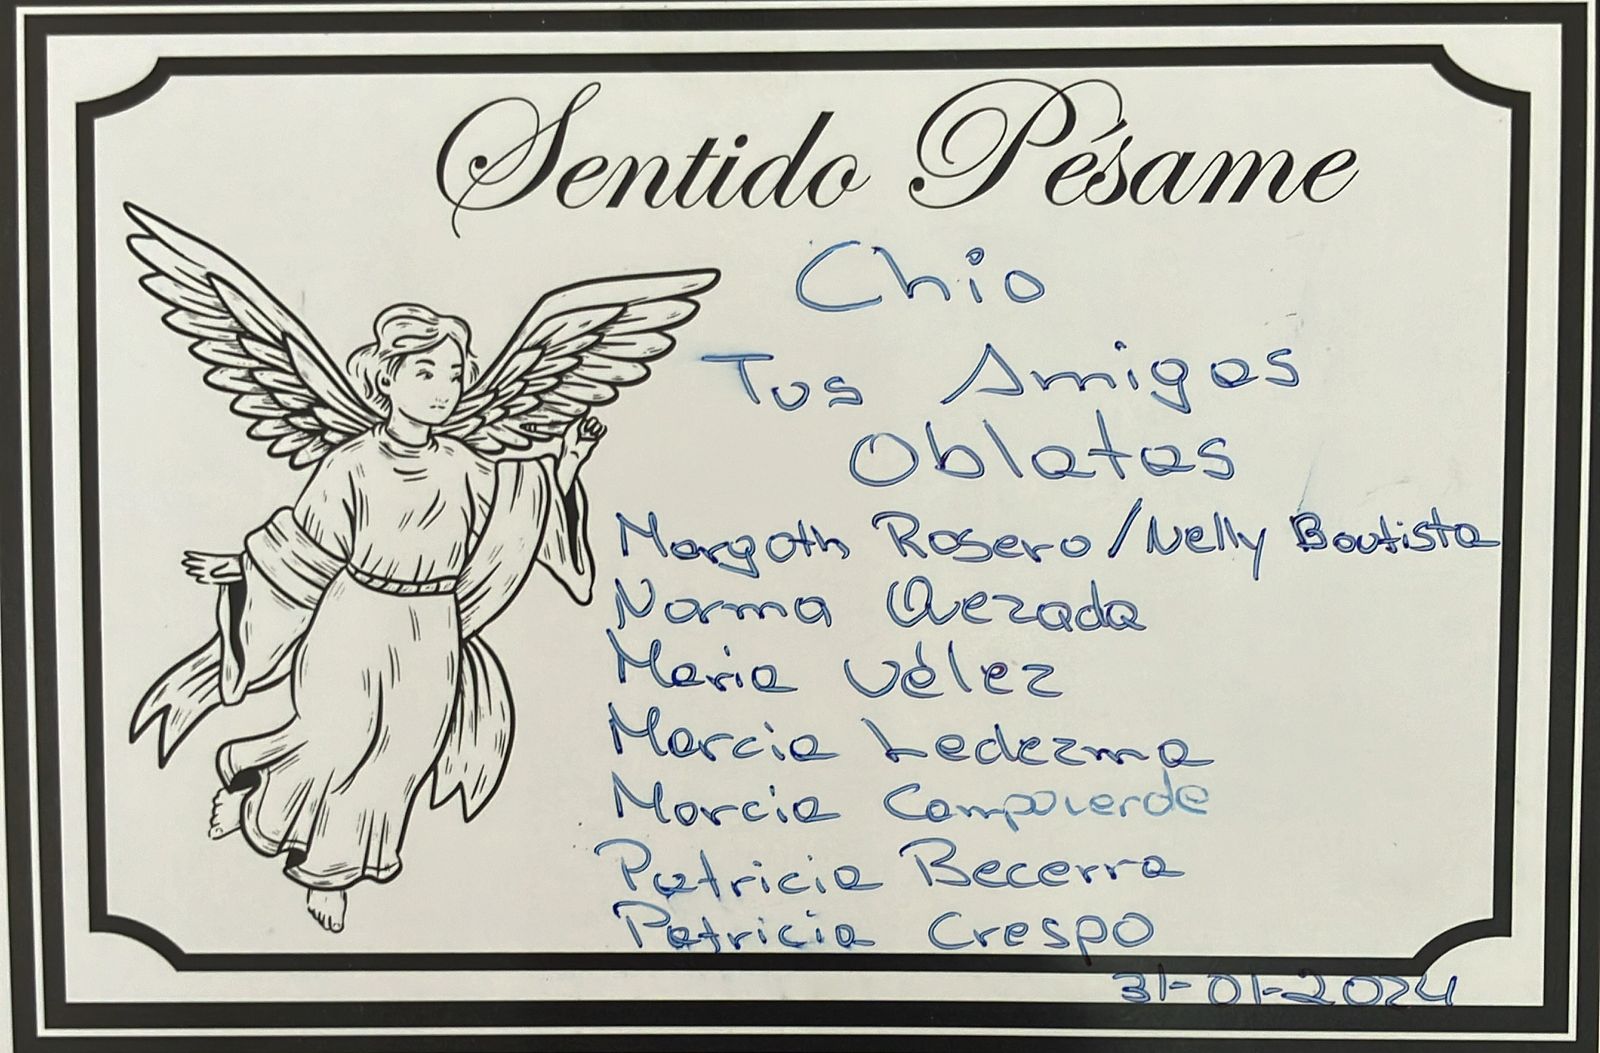 Sentido Pésame
Chio
Tus Amigas
Oblatas
Margoth Rosero / Nelly Bautista
Norma Quezada
Maria Vélez
Marcia Ledezma
Marcia Campoverde
Patricia Becerra
Patricia Crespo
31-01-2024